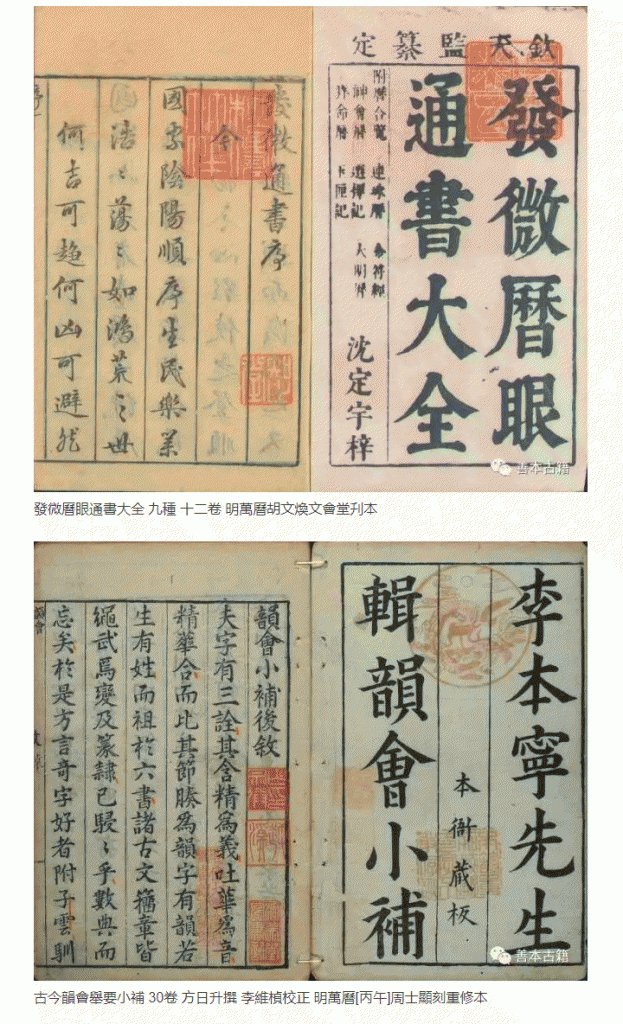 欽天監纂定
發微曆眼
通書大全
附曆合覽 連珠曆
選擇記 大明曆
玉匣記
沈定宇梓
發微通書序
今
國家陰陽順序生民樂業
浩〻蕩〻如鴻荒之世
何吉可趨何凶可避然
善本古籍
發微曆眼通書大全 九種 十二卷 明萬曆胡文煥文會堂刋本
李本寧先生
本衙藏板
輯韻會小補
韻會小補後敘
夫字有三詮其含精為義吐華為音
精華合而比其節腠為韻字有韻若
生有姓而祖於六書諸古文籀章皆
繩武焉變及篆隸已駸〻乎數典而
忘矣於是方言奇字好者附子雲馴
善本古籍
古今韻會舉要小補 30卷 方日升撰 李維楨校正 明萬曆[丙午]周士顯刻重修本